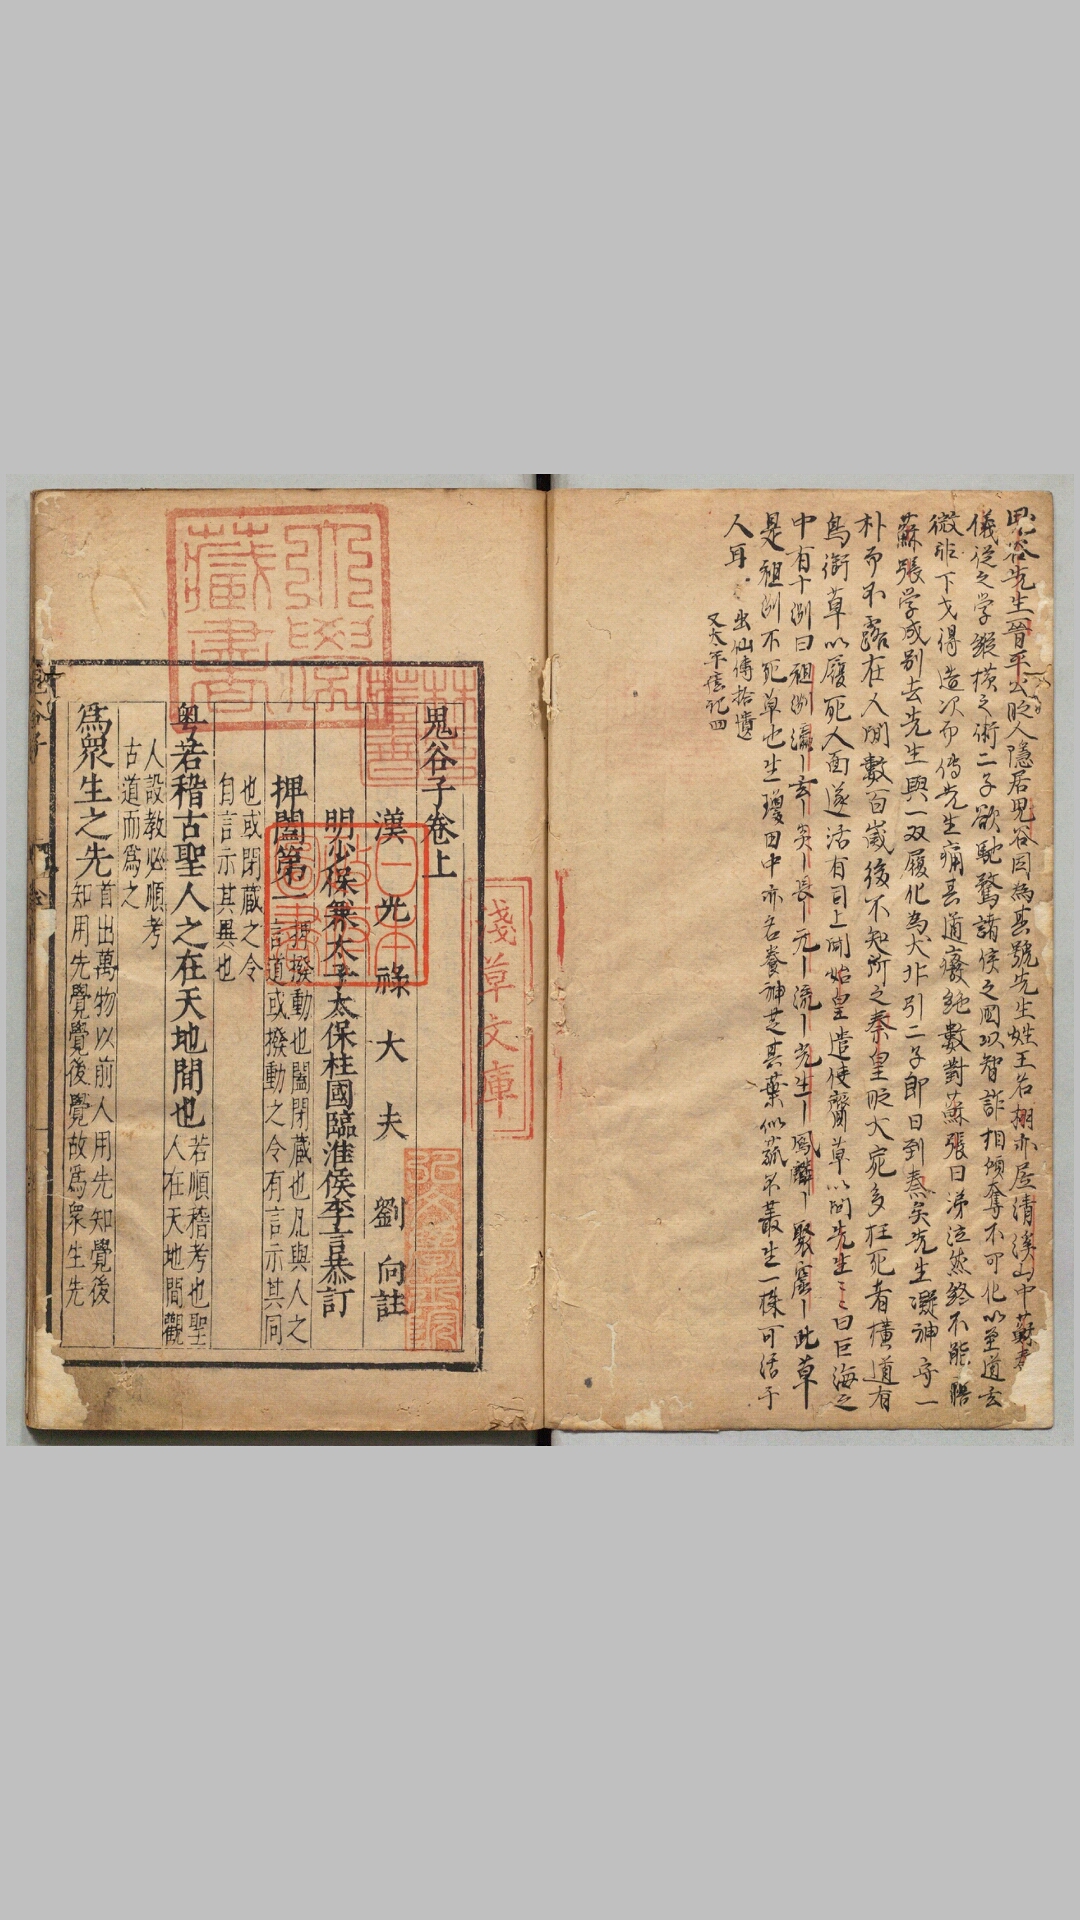 鬼谷先生晉平公時人隱居鬼谷因為其號先生姓王名栩亦居清溪山中蘇秦張
儀從之学縱横之術二子欲馳騖諸侯之國以智詐相傾奪不可化以至道玄
微非下才得造次而傳先生痛其道廢絶數對蘇張曰涕泣然終不能寤
蘇張学成别去先生與一双履化為犬北引二子即日到秦矣先生凝神守一
朴而不露在人間數百歲後不知所之秦皇時大宛多枉死者横道有
鳥銜草以覆死人面遂活有司上聞始皇遣使齎草以問先生〻〻曰巨海之
中有十洲曰祖洲瀛〡玄〡炎〡長〡元〡流〡光生〡鳳麟〡聚窟〡此草
是祖洲不死草也生瓊田中亦名養神芝其葉似菰不叢生一株可活千
人耳
出仙傳拾遺
又太平廣記四
鬼谷子卷上
漢光祿大夫劉向註
明少保兼太子太保柱國臨淮侯李言恭訂
捭闔第一
捭撥動也闔閉藏也凡與人之
言道或撥動之令有言示其同
也或閉藏之令
自言示其異也
粤若稽古聖人之在天地間也
若順稽考也聖
人在天地間觀
人設教必順考
古道而爲之
爲衆生之先
首出萬物以前人用先知覺後
知用先覺覺後覺故爲衆生先
淺草文庫
日本
藏書